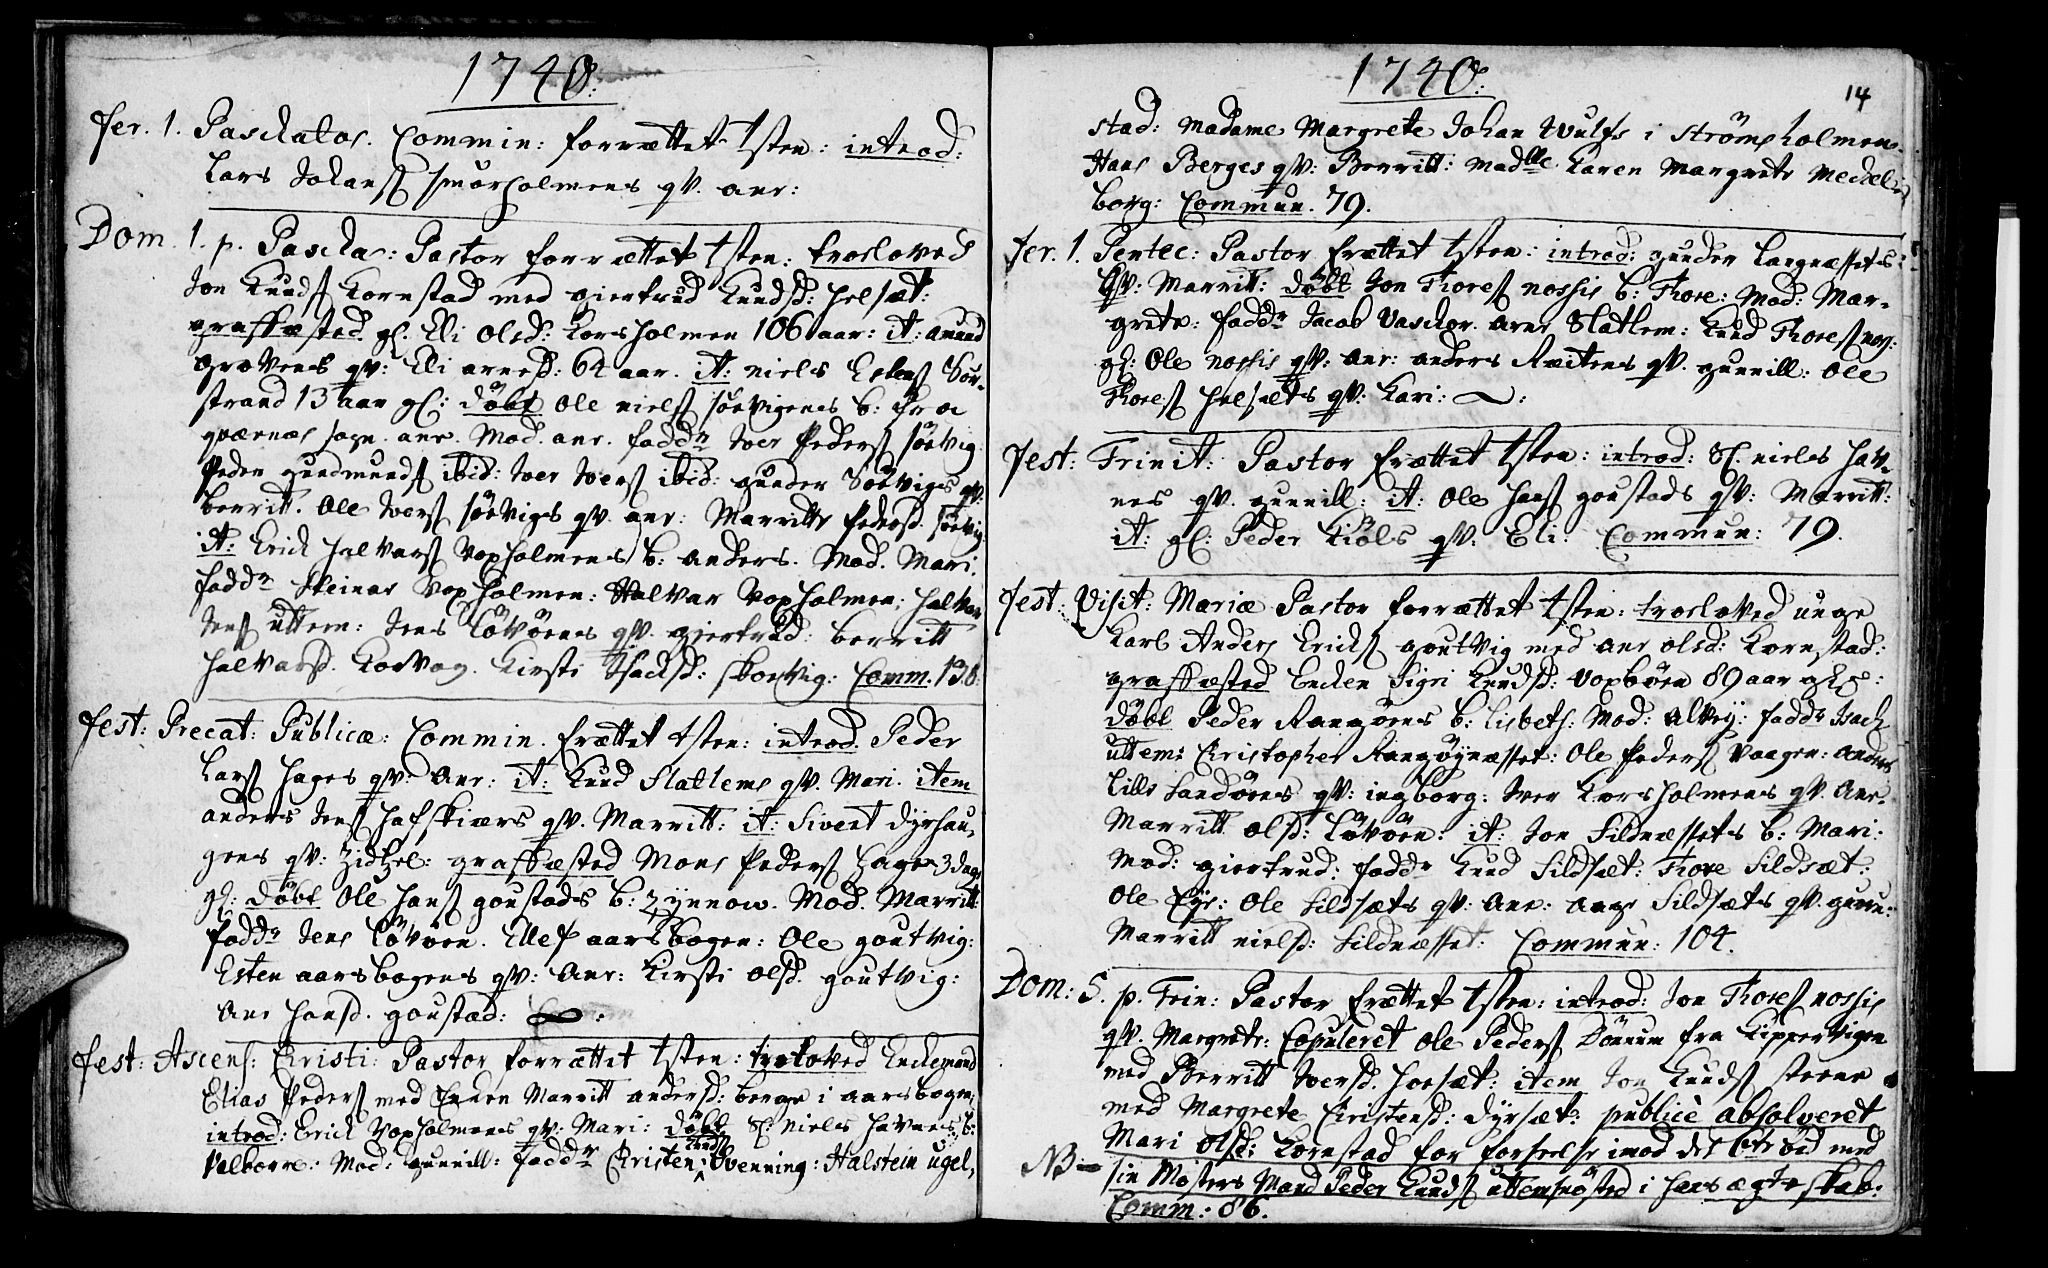 1740.
fer. 1. Paschatos. Commin: forrættet tsten: introd:
Lars Johans smörholmens qv. anr:
Dom. 1. p. Pascha: Pastor forrættet tsten: troloved
Jon Knuds Kornstad med giertrud Knudsd: helsæt:
graffæsted gl. Eli Olsd: Korsholmen 106 aar: it: amund
grøvens qv: Eli arnesd: 64 aar. it: niels Estens Sør-
strand 13 aar gl: döbt Ole niels sörvigens b: fra
qværnæs sogn. anr. Mod. anr. fadd: Iver Peders sörvig
Peder gundmunds ibid: Iver Ivers ibid: gunder Sörvigs qv:
berritt. Ole Ivers sörvigs qv. anr: Marritte Pedersd. sörvig
it: Erich Halvars Voxholmens b: anders. Mod. Mari.
fadd: Steinar Voxholmen: Halvar Voxholmen: halvar
Jens uttem: Jens Lövöens qv. giertrud: berritt
halvarsd. Korvog. Kirsti Isachsd: skorvig: Comm. 138.
fest: Precat: Publicæ: Commin. frættet tsten: introd. Peder
Lars hages qv: Anr: it: Knud Slatlems qv. Mari. item
anders Jens hafskiærs qv. Marritt: it: Sivert dyrhau-
gens qv: Zidtzel: graffæsted Mons Peders hage 3 dage
gl: döbt Ole Hans goustads b: zynnow. Mod. Marritt:
fadd: Jens Lövöen. Ellef aarsbogen: Ole goutvig:
Esten aarsbogens qv: Anr: Kirsti Olsd. goutvig:
Anr Hansd. goustad:
fest: Ascens: Christi: Pastor forrættet tsten: troloved Enckemand
Elias Peders med Encken Marritt andersd: berge i aarsbogen:
introd: Erich Voxholmens qv: Mari: döbt Sl: niels havnes b:
Valborre: Mod: gunnill: fadd: Christen Knuds Svenning: Halstein ugel,
1740. 14
stad: Madame Margrete Johan Wulfs i Strömsholmen.
Hans Berges qv: Berritt: Madlle Karen Margrete Mechelin
borg: Commun. 79.
fer. 1. Pentec: Pastor frættet tsten: introd: gunder Langnæssets
qv: Marrit: döbt Jon Thores nossis b: Thore: Mod: Mar-
grete: fadd: Jacob Vasckor. arne Slatlem: Knud Thores nos:
gl: Ole nossis qv: anr: anders Ræitens qv. gunnill: Ole
Thores helsæts qv: Kari:
fest: Trinit: Pastor frættet tsten: introd: Sl. niels hav-
nes qv. gunnill: it: Ole Hans goustads qv: Marritt:
it: gl: Peder Kiöls qv: Eli: Commun: 79.
fest: Visit: Mariæ Pastor forrættet tsten: trolovet unge
Karl Anders Erichs goutvig med anr olsd: Kornstad:
graffæsted Encken Sigri Knudsd: Voxböen 89 aar gl:
döbt Peder Ranzöens b: Lisbeth: Mod: Altrij: fadd: Isach
uttem: Christopher Ranzöynæsset: Ole Peders Vaagen: Anders
Lille Sandöens qv: ingborg: Iver Korsholmens qv. Anr.
Marritt olsd: Lövöen: it: Jon Sildnæssets b: Mari:
Mod: giertrud: fadd: Knud Sildsæt: Thore Sildsæt:
Ole Eye: Ole Sildsæts qv: Anr: Aage Sildsæts qv. gunn:
Marritt nielsd: Sildnæsset: Commun: 104.
Dom: 5. p. Trin: Pastor frættet tsten: introd: Jon Thores nossis
qv. Margrete: Copuleret Ole Peders Dönum fra Kippervigen
med Berritt Iversd. Hoesæt: item Jon Knuds steene
med Margrete Christensd: dyrsæt: publicè absolveret
Mari Olsd: Kornstad for forseelse imod det 6te bud med
NB: sin Mosters Mand Peder Knuds uttemsnösted i hans ægteskab:
Comm: 86.